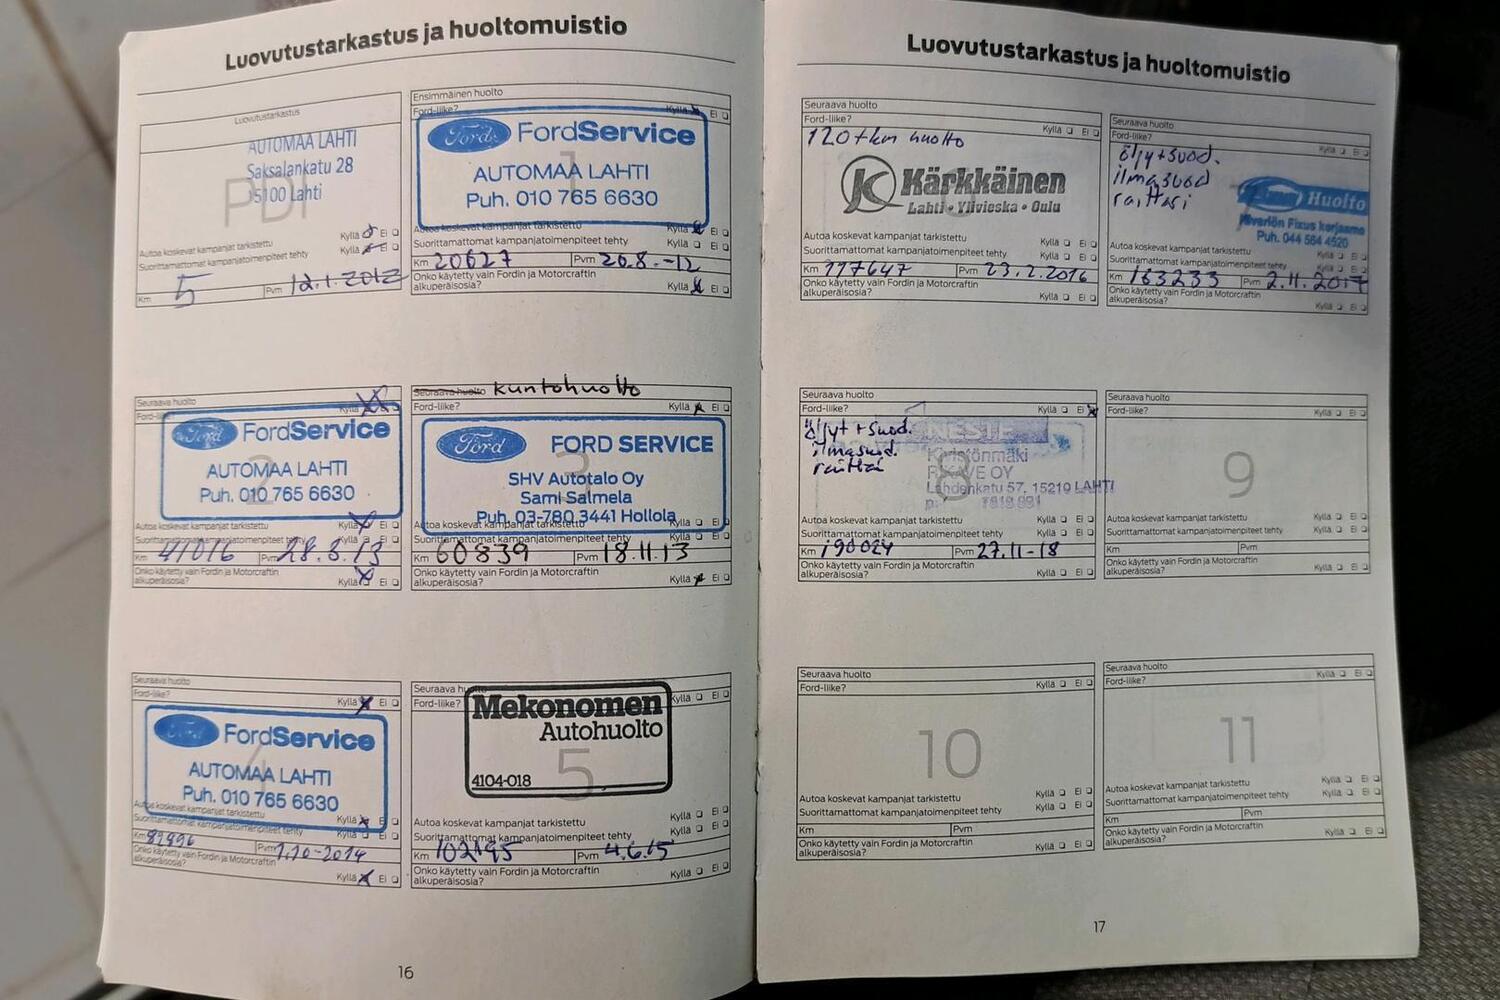 Luovutustarkastus ja huoltomuistio
Luovutustarkastus
AUTOMAA LAHTI
Saksalankatu 28
15100 Lahti
PDI
Autoa koskevat kampanjat tarkistettu Kyllä Ei
Suorittamattomat kampanjatoimenpiteet tehty Kyllä Ei
Km 5 Pvm 12.1.2012
Ensimmäinen huolto
Ford-liike? Kyllä Ei
Ford FordService
1
AUTOMAA LAHTI
Puh. 010 765 6630
Autoa koskevat kampanjat tarkistettu Kyllä Ei
Suorittamattomat kampanjatoimenpiteet tehty Kyllä Ei
Km 20627 Pvm 20.8.-12
Onko käytetty vain Fordin ja Motorcraftin
alkuperäisosia? Kyllä Ei
Seuraava huolto
Ford-liike? Kyllä Ei
Ford FordService
2
AUTOMAA LAHTI
Puh. 010 765 6630
Autoa koskevat kampanjat tarkistettu Kyllä Ei
Suorittamattomat kampanjatoimenpiteet tehty Kyllä Ei
Km 41016 Pvm 28.3.13
Onko käytetty vain Fordin ja Motorcraftin
alkuperäisosia? Kyllä Ei
Seuraava huolto kuntohuolto
Ford-liike? Kyllä Ei
Ford FORD SERVICE
3
SHV Autotalo Oy
Sami Salmela
Puh. 03-780 3441 Hollola
Autoa koskevat kampanjat tarkistettu Kyllä Ei
Suorittamattomat kampanjatoimenpiteet tehty
Km 60839 Pvm 18.11.13
Onko käytetty vain Fordin ja Motorcraftin
alkuperäisosia? Kyllä Ei
Seuraava huolto
Ford-liike? Kyllä Ei
Ford FordService
4
AUTOMAA LAHTI
Puh. 010 765 6630
Autoa koskevat kampanjat tarkistettu Kyllä Ei
Suorittamattomat kampanjatoimenpiteet tehty Kyllä Ei
Km 89996 Pvm 1.10-2014
Onko käytetty vain Fordin ja Motorcraftin
alkuperäisosia? Kyllä Ei
Seuraava huolto
Ford-liike? Kyllä Ei
Mekonomen
Autohuolto
5
4104-018
Autoa koskevat kampanjat tarkistettu Kyllä Ei
Suorittamattomat kampanjatoimenpiteet tehty Kyllä Ei
Km 102195 Pvm 4.6.15
Onko käytetty vain Fordin ja Motorcraftin
alkuperäisosia? Kyllä Ei
16
Luovutustarkastus ja huoltomuistio
Seuraava huolto
Ford-liike? Kyllä Ei
120 tkm huolto
Kärkkäinen
Lahti • Ylivieska • Oulu
Autoa koskevat kampanjat tarkistettu Kyllä Ei
Suorittamattomat kampanjatoimenpiteet tehty Kyllä Ei
Km 117647 Pvm 23.2.2016
Onko käytetty vain Fordin ja Motorcraftin
alkuperäisosia? Kyllä Ei
Seuraava huolto
Ford-liike? Kyllä Ei
öljy+suod.
ilmasuod
raittasi
Huolto
Fixus korjaamo
Puh. 044 564 4520
Autoa koskevat kampanjat tarkistettu Kyllä Ei
Suorittamattomat kampanjatoimenpiteet tehty Kyllä Ei
Km 163233 Pvm 2.11.2017
Onko käytetty vain Fordin ja Motorcraftin
alkuperäisosia? Kyllä Ei
Seuraava huolto
Ford-liike? Kyllä Ei
öljyt + suod.
ilmasuod.
NESTE
8
OY
Lahdenkatu 57, 15210 LAHTI
Autoa koskevat kampanjat tarkistettu Kyllä Ei
Suorittamattomat kampanjatoimenpiteet tehty Kyllä Ei
Km 190024 Pvm 27.11-18
Onko käytetty vain Fordin ja Motorcraftin
alkuperäisosia? Kyllä Ei
Seuraava huolto
Ford-liike? Kyllä Ei
9
Autoa koskevat kampanjat tarkistettu Kyllä Ei
Suorittamattomat kampanjatoimenpiteet tehty Kyllä Ei
Km Pvm
Onko käytetty vain Fordin ja Motorcraftin
alkuperäisosia? Kyllä Ei
Seuraava huolto
Ford-liike? Kyllä Ei
10
Autoa koskevat kampanjat tarkistettu Kyllä Ei
Suorittamattomat kampanjatoimenpiteet tehty Kyllä Ei
Km Pvm
Onko käytetty vain Fordin ja Motorcraftin
alkuperäisosia? Kyllä Ei
Seuraava huolto
Ford-liike? Kyllä Ei
11
Autoa koskevat kampanjat tarkistettu Kyllä Ei
Suorittamattomat kampanjatoimenpiteet tehty Kyllä Ei
Km Pvm
Onko käytetty vain Fordin ja Motorcraftin
alkuperäisosia? Kyllä Ei
17